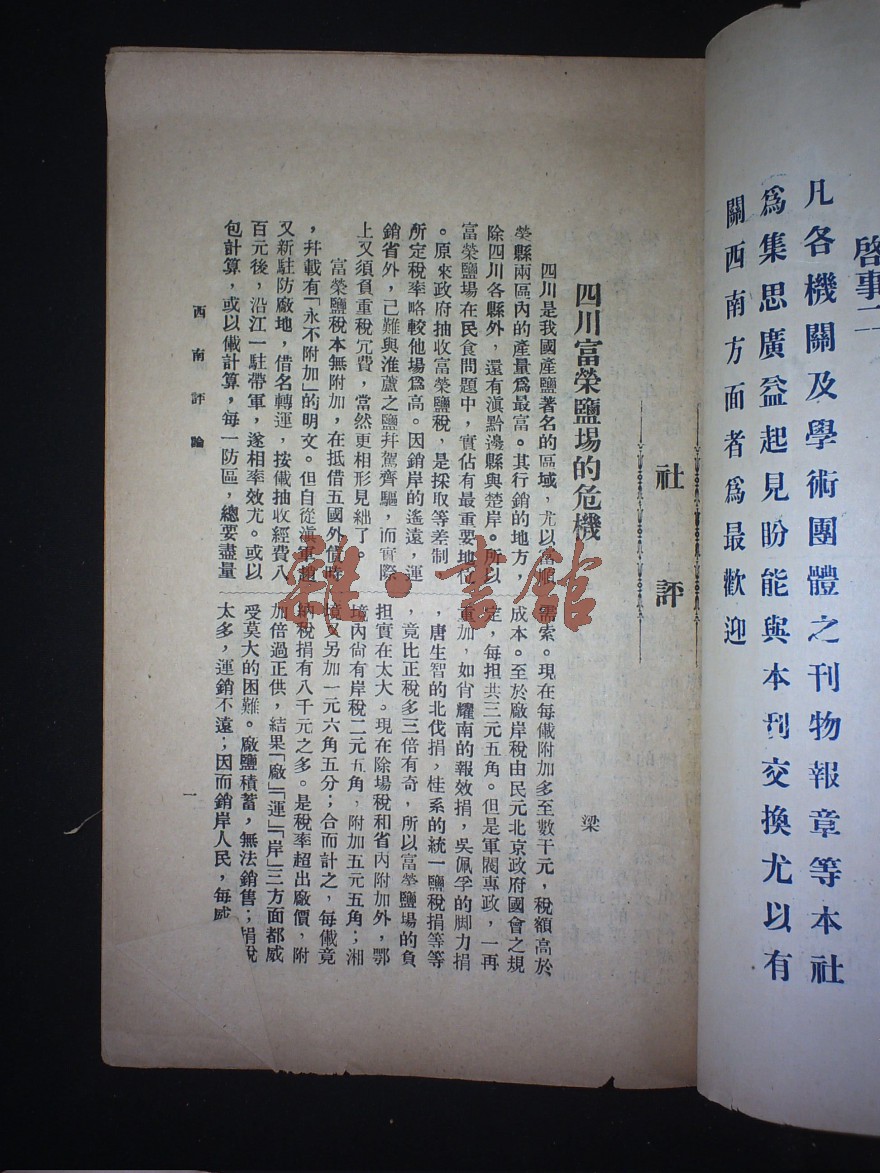 啓事二
凡各機關及學術團體之刊物報章等本社
爲集思廣益起見盼能與本刊交換尤以有
關西南方面者爲最歡迎
社評
四川富榮鹽場的危機
梁
四川是我國產鹽著名的區域,尤以富順
榮縣兩區內的產量爲最富。其行銷的地方,
除四川各縣外,還有滇黔邊縣與楚岸。所以
富榮鹽場在民食問題中,實佔有最重要地位
。原來政府抽收富榮鹽稅,是採取等差制
所定稅率略較他場爲高。因銷岸的遙遠,運
銷省外,已難與淮蘆之鹽幷駕齊驅,而實際
上又須負重稅冗費,當然更相形見絀了。
富榮鹽稅本無附加,在抵借五國外債時
,幷載有「永不附加」的明文。但自從滇軍趙
又新駐防廠地,借名轉運,按儎抽收經費八
百元後,沿江一駐帶軍,遂相率效尤。或以
包計算,或以儎計算,每一防區,總要盡量
需索。現在每儎附加多至數千元,稅額高於
成本。至於廠岸稅由民元北京政府國會之規
定,每担共三元五角。但是軍閥專政,一再
重加,如肖耀南的報效捐,吳佩孚的脚力捐
,唐生智的北伐捐,桂系的統一鹽稅捐等等
,竟比正稅多三倍有奇,所以富榮鹽場的負
担實在太大。現在除場稅和省內附加外,鄂
境內尙有岸稅二元五角,附加五元五角;湘
境又另加一元六角五分;合而計之,每儎竟
納稅捐有八千元之多。是稅率超出廠價,附
加倍過正供,結果「廠」「運」「岸」三方面都威
受莫大的困難。廠鹽積蓄,無法銷售;捐稅
太多,運銷不遠;因而銷岸人民,每感
西南評論
一
雜·書館